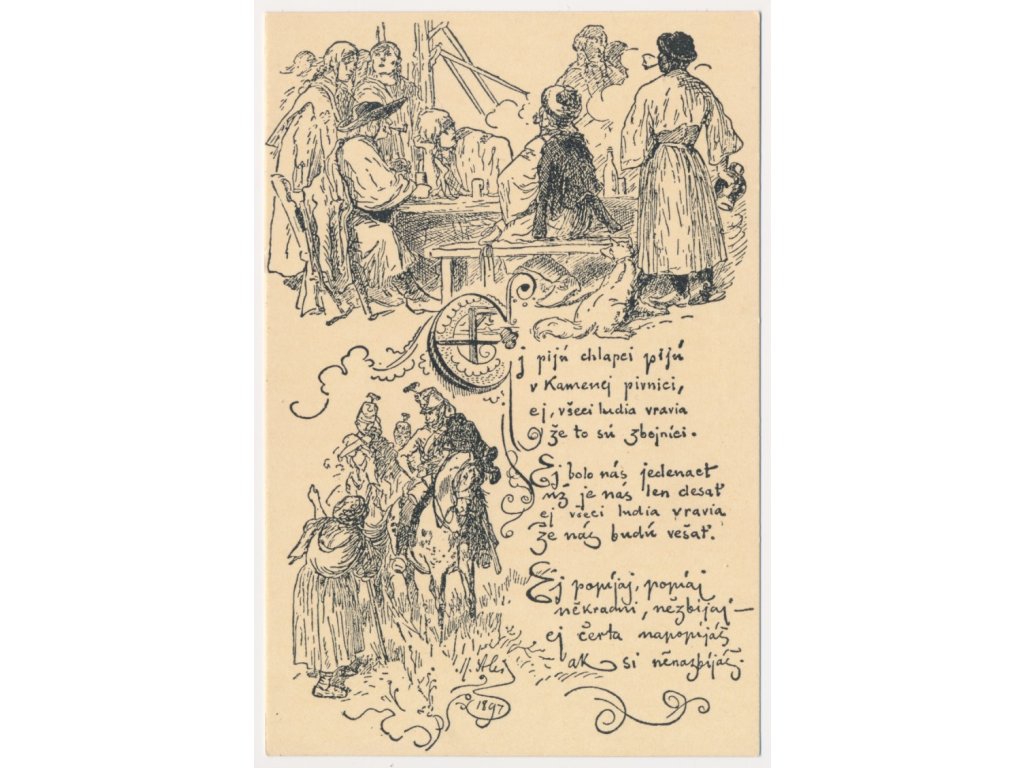 Ej pijú chlapci pijú
v Kamenej pivnici,
ej, všeci ludia vravia
že to sú zbojníci.
Ej bolo nás jedenact
už je nás len desať
ej všeci ludia vravia
že nás budú vešať.
Ej popíjaj, popíjaj
někradni, nězbíjaj —
ej čerta napopíjáš
ak si něnazbíjáš.
M. Aleš
1897